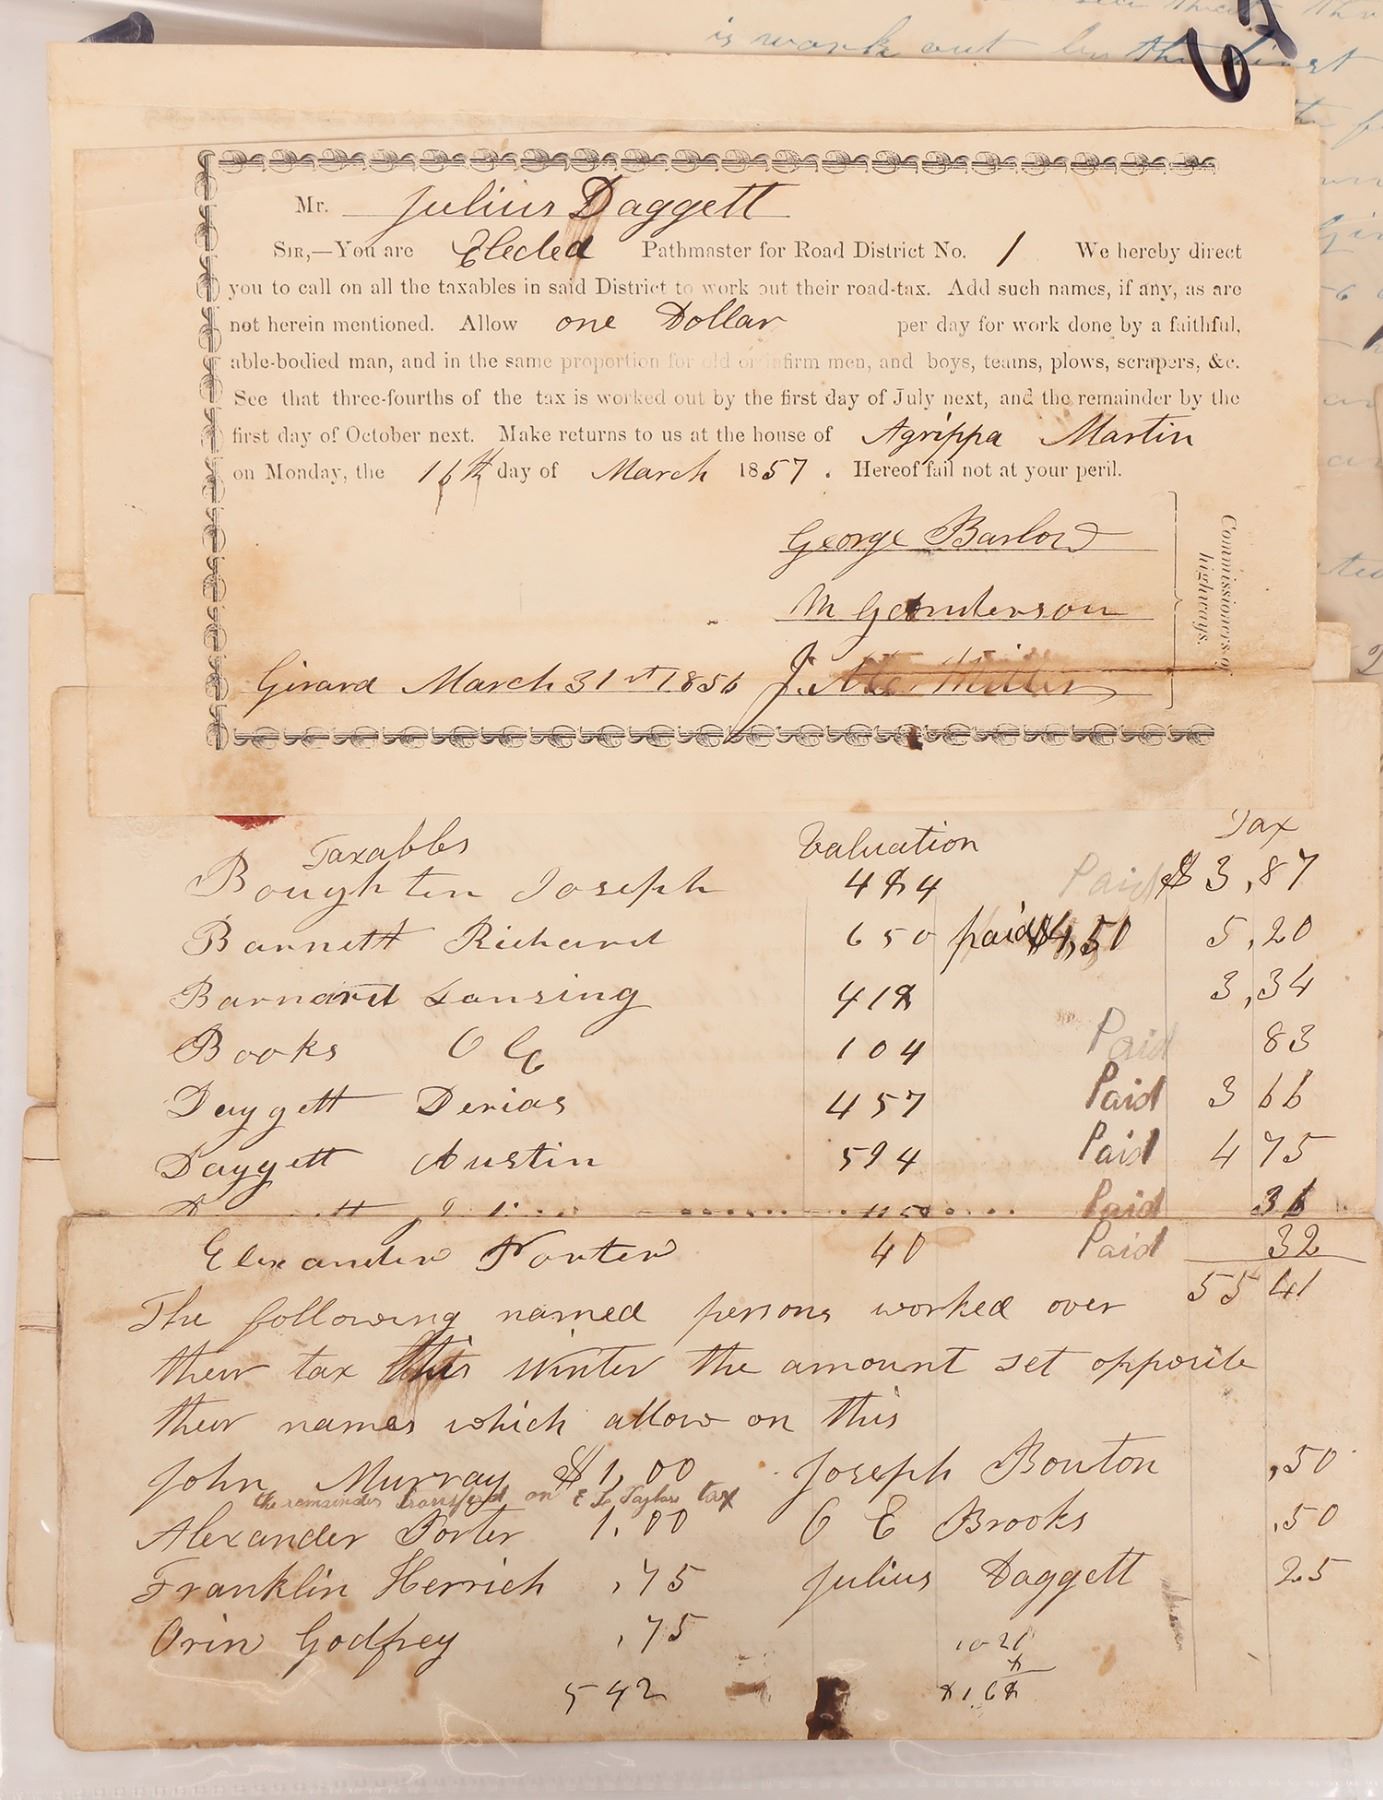 is work out by the first
67
Mr. Julius Daggett
SIR,—You are Elected Pathmaster for Road District No. 1 We hereby direct
you to call on all the taxables in said District to work out their road-tax. Add such names, if any, as are
not herein mentioned. Allow one Dollar per day for work done by a faithful,
able-bodied man, and in the same proportion for old or infirm men, and boys, teams, plows, scrapers, &c.
See that three-fourths of the tax is worked out by the first day of July next, and the remainder by the
first day of October next. Make returns to us at the house of Agrippa Martin
on Monday, the 16th day of March 1857. Hereof fail not at your peril.
George Barlow
M Ganderson
J. Miller
Commissioners of highways.
Girard March 31st 1856
Taxables Valuation Tax
Boughten Joseph 484 Paid $3,87
Barnett Richard 650 paid $4,50 5,20
Barnard Lansing 418 3,34
Books O E 104 Paid 83
Daygett Derias 457 Paid 3 66
Daggett Austin 594 Paid 4 75
Paid 36
Elexander Porter 40 Paid 32
55 41
The following named persons worked over
their tax this winter the amount set opposite
their names which allow on this
John Murray $1,00 Joseph Bouton ,50
the remainder transferd on E L Taylors tax
Alexander Porter 1,00 O E Brooks ,50
Franklin Herrich ,75 Julius Daggett 25
Orin Godfrey ,75
542